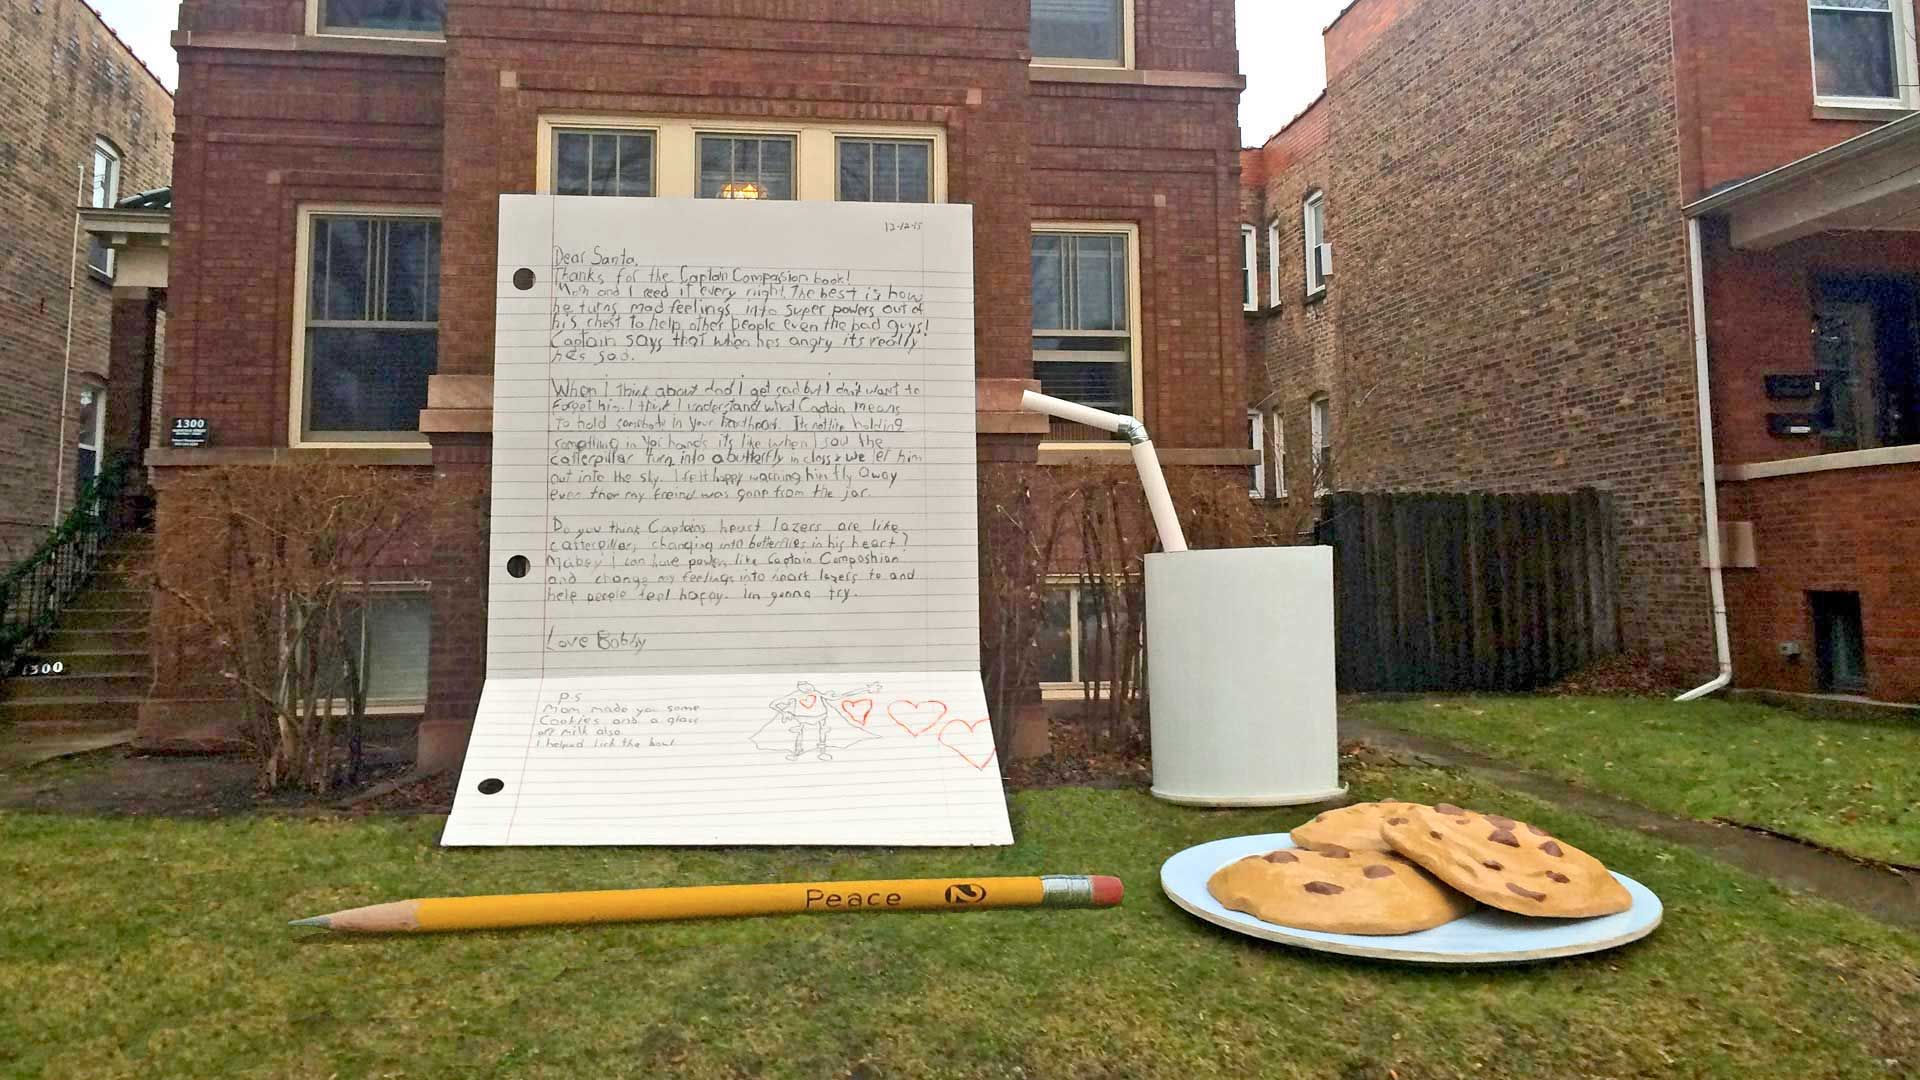 12-12-15
Dear Santa,
Thanks for the Captain Compassion book!
Mom and I reed it every night. The best is how
he turns mad feelings into super powers out of
his chest to help other people even the bad guys!
Captain says that when hes angry its really
hes sad.
When i think about dad i get sad but I don't want to
forget him. I think I understand what Captain means
to hold somebody in your heart. Its not like holding
something in your hands its like when I saw the
catterpillar turn into a butterfly in class & we let him
out into the sky. I felt happy waching him fly away
even tho my freind was gone from the jar.
Do you think Captains heart lazers are like
catterpillars changing into butterflies in his heart?
Mabey I can have powers like Captain Composhion
and change my feelings into heart lazers to and
help people feel happy. Im gonna try.
Love Bobby
P.S
Mom made you some
Cookies and a glass
of milk also
I helped lick the bowl
Peace 2
1300
1300